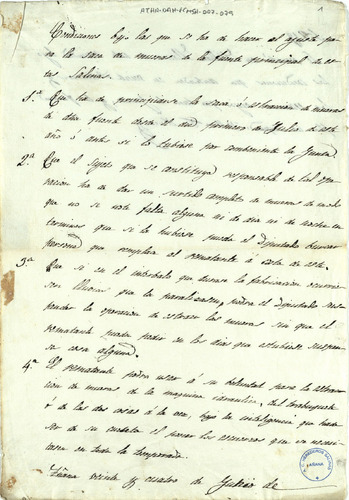 ATHA-DAH-FCMSA-007-079
1
Condiciones bajo las que se ha de hacer el ajuste pa-
ra la saca de mueras de la fuente principal de es-
tas Salinas.
1.ª Que ha de principiarse la saca ó estraccion de mueras
de dha fuente desde el dia primero de Julio de este
año ó antes si lo tubiese por combeniente la Junta
2.ª Que el sujeto que se constituya responsable de tal ope-
racion ha de dar un surtido completo de mueras de mod
que no se note falta alguna ni de dia ni de noche en
terminos que si la hubiese pueda el Diputado buscar
persona que remplace al rematante á costa de este.
3.ª Que si en el intervalo que durare la fabricacion ocurrie-
sen lluvias que la paralicen, podra el Diputado sus-
pender la operacion de estraer las mueras sin que el
rematante pueda pedir en los dias que estubiese suspen-
sa cosa alguna.
4.ª El rematante podra usar á su boluntad para la estrac-
cion de mueras de la maquina, del trabuquete
ó de las dos cosas á la vez, bajo la inteligencia que ha de
ser de su cuenta el pagar los que se necesi-
tasen en toda la temporada.
Añana veinte y cuatro de Junio de
AÑANA